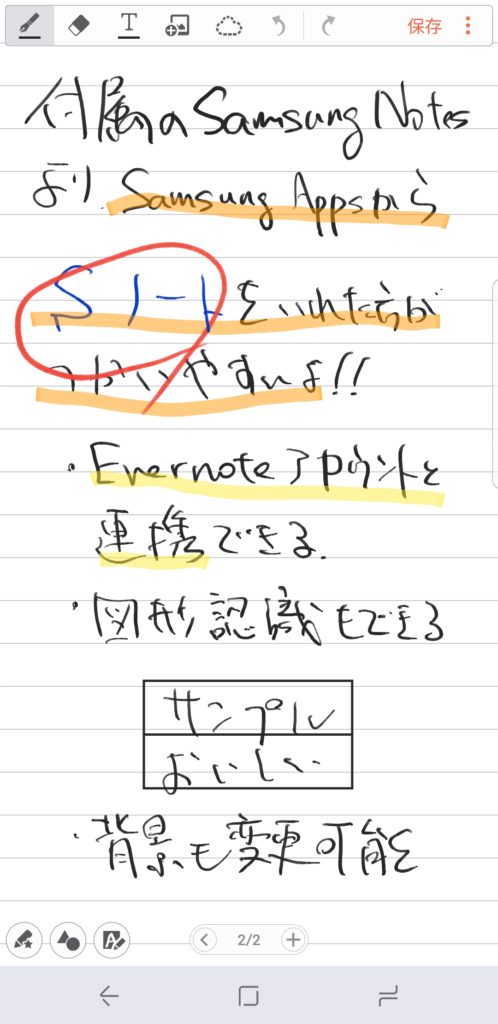 保存
付属のSamsung Notes
より、Samsung Appsから
Sノートをいれた方が
つかいやすいよ!!
・Evernoteアカウントと
連携できる.
・図形認識もできる
サンプル
おいしい
・背景も変更可能を
2/2